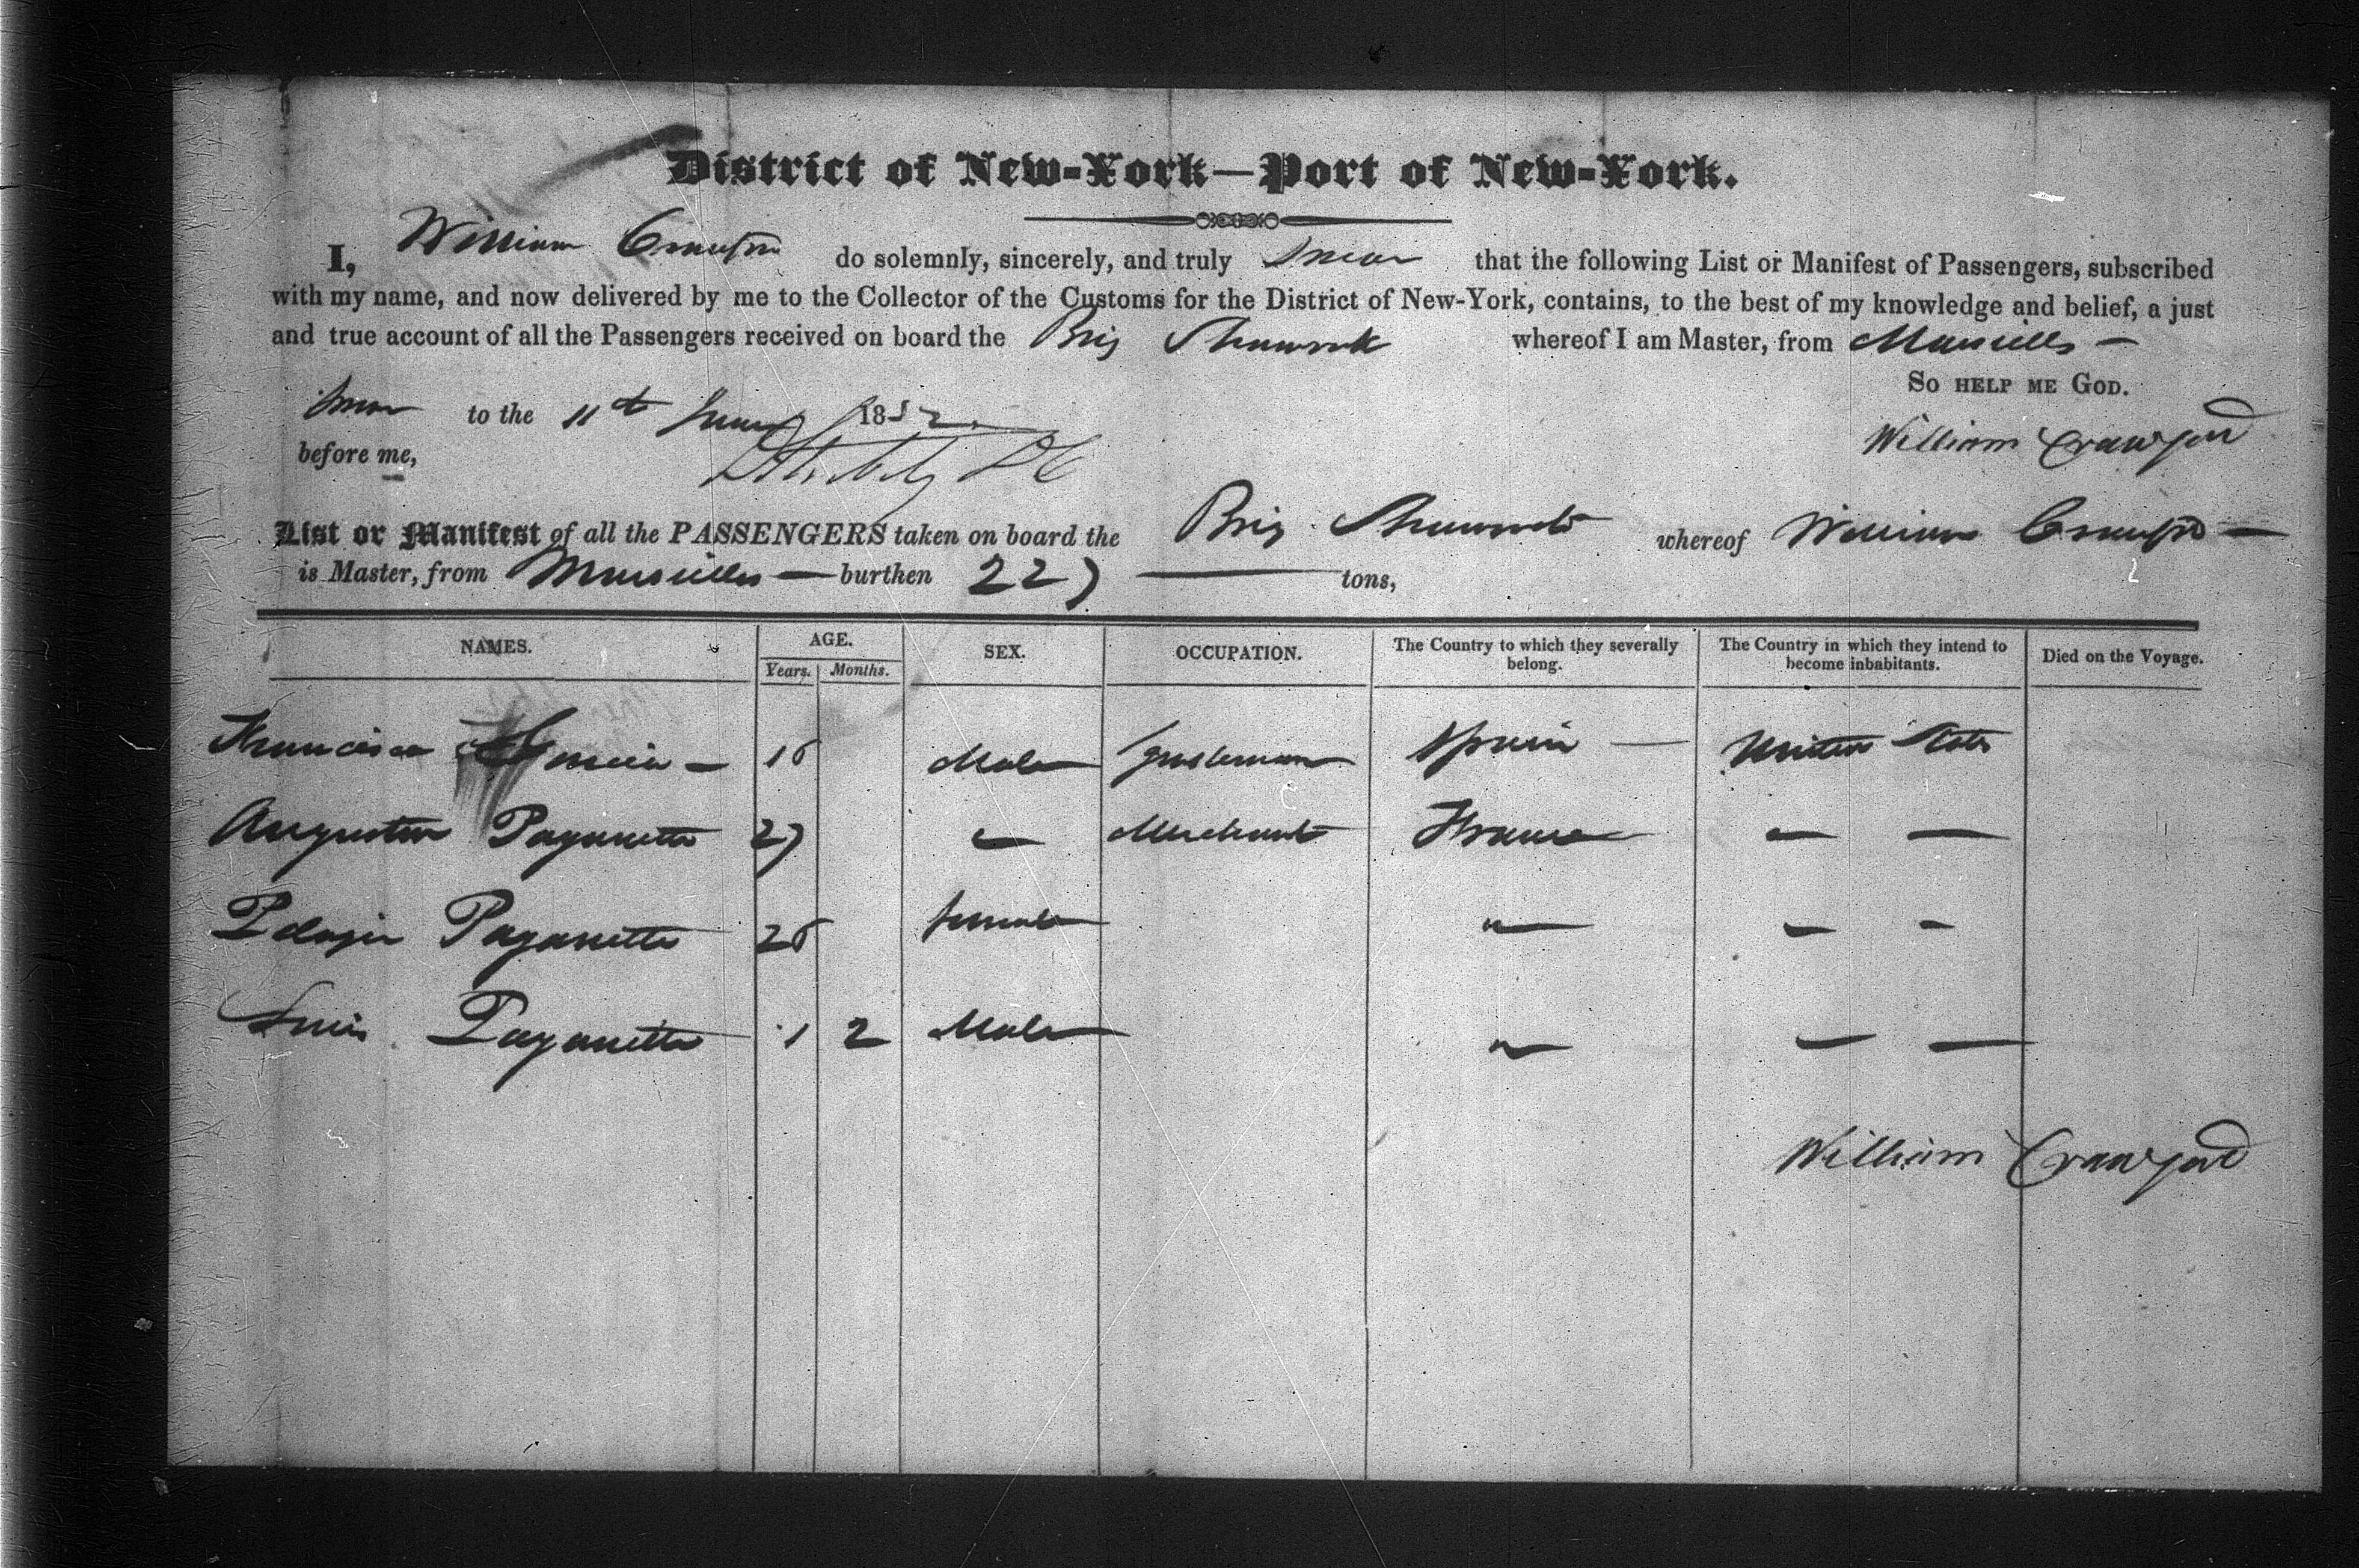 District of New-York—Port of New-York.
I, William Crawford do solemnly, sincerely, and truly swear that the following List or Manifest of Passengers, subscribed
with my name, and now delivered by me to the Collector of the Customs for the District of New-York, contains, to the best of my knowledge and belief, a just
and true account of all the Passengers received on board the Brig whereof I am Master, from Marseilles —
So help me God.
Sworn to the 11th June 1852
William Crawford
before me,
List or Manifest of all the PASSENGERS taken on board the Brig whereof William Crawford —
is Master, from Marseilles — burthen 227 — tons,
NAMES. AGE. SEX. OCCUPATION. The Country to which they severally belong. The Country in which they intend to become inhabitants. Died on the Voyage.
Years. Months.
Francisco — Male Gentleman Spain — United States
Augustin Paganetto 27 — Merchant France — —
Pelagie Paganetto 26 female " — — -
Louis Paganetto 1 2 Male " — — —
William Crawford